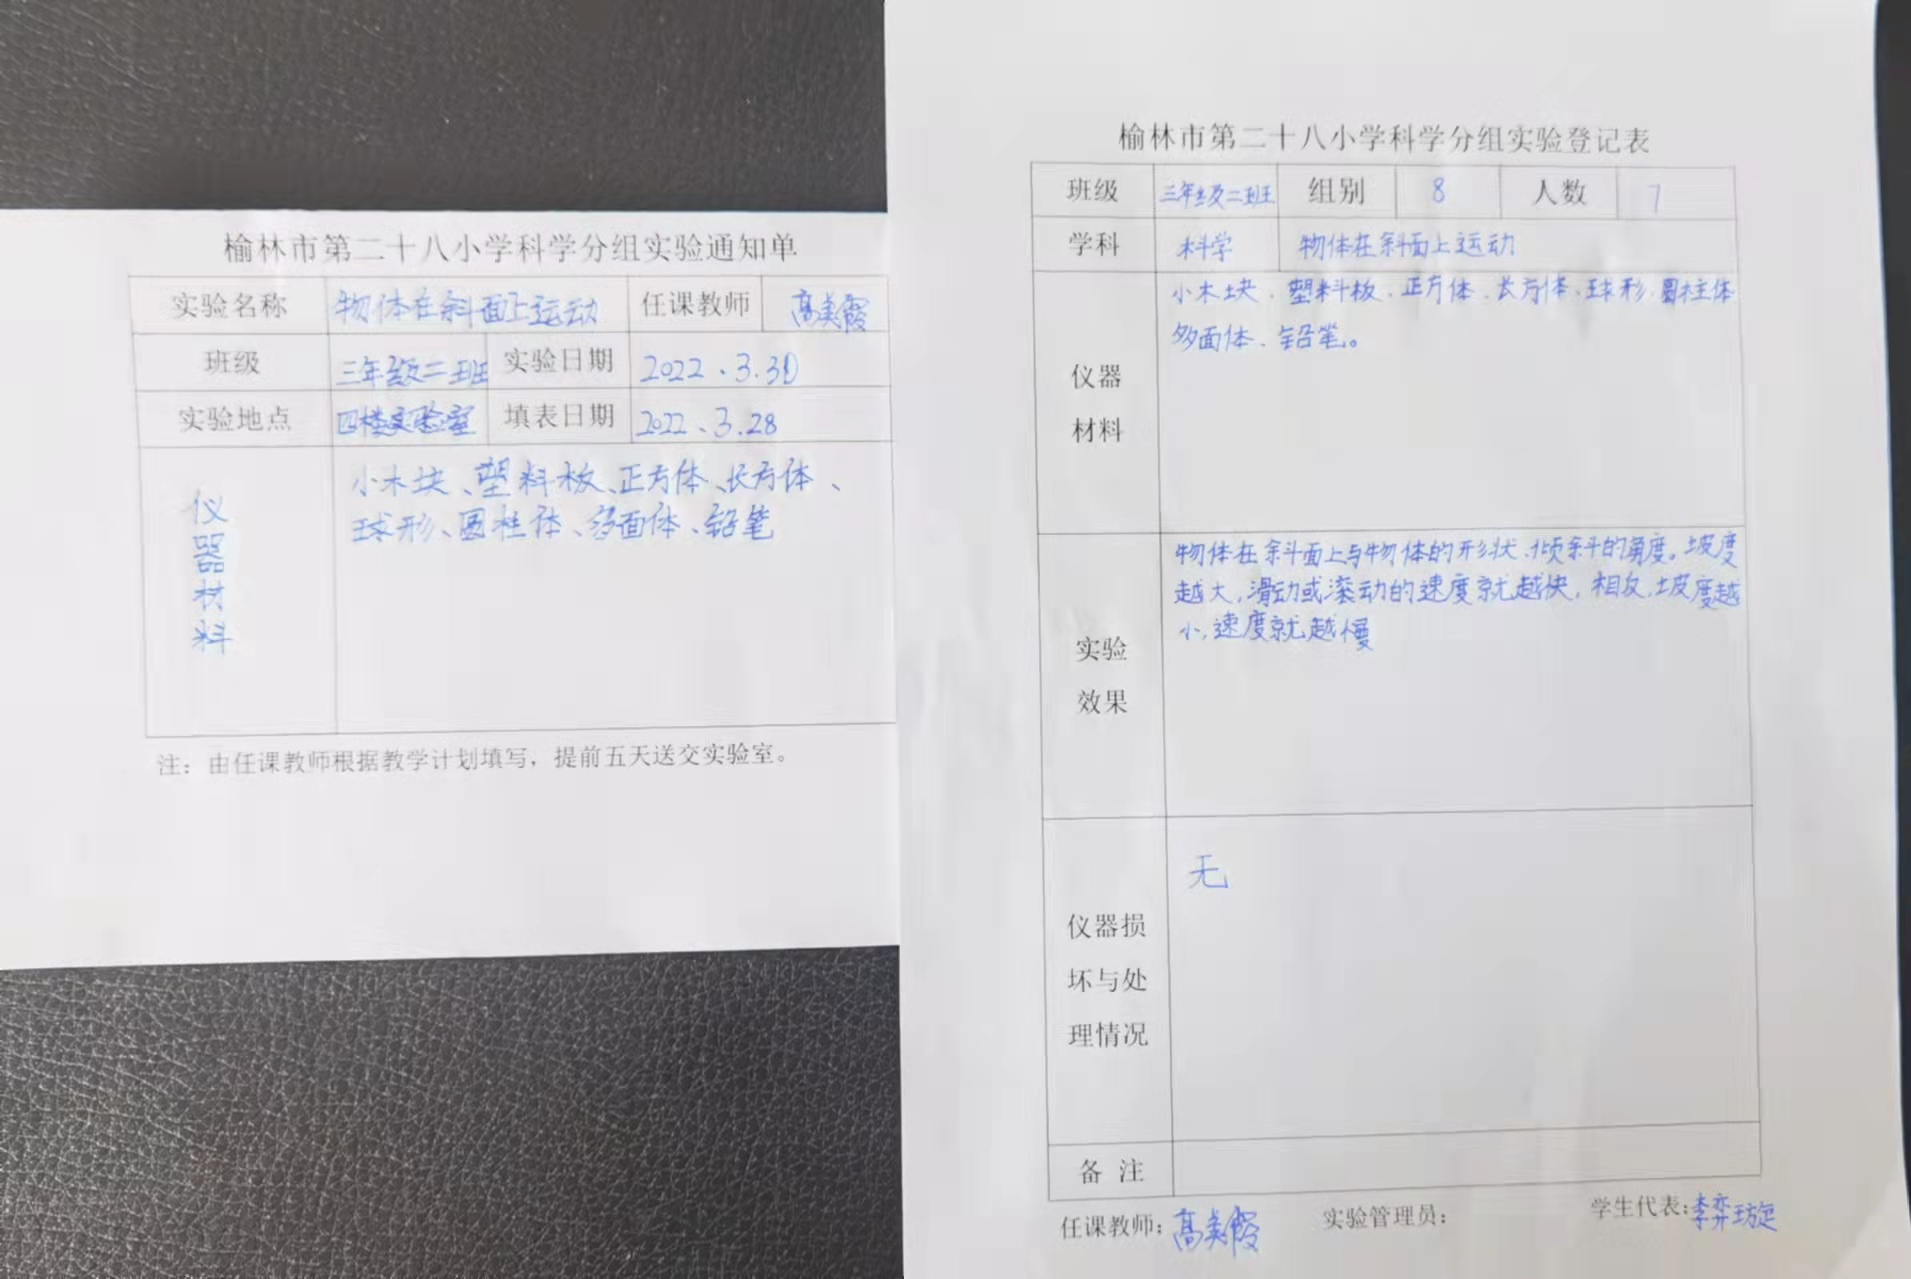 榆林市第二十八小学科学分组实验通知单
实验名称 物体在斜面上运动 任课教师 高美霞
班级 三年级二班 实验日期 2022.3.30
实验地点 四楼实验室 填表日期 2022.3.28
仪器材料
小木块、塑料板、正方体、长方体、
球形、圆柱体、多面体、铅笔
注：由任课教师根据教学计划填写，提前五天送交实验室。
榆林市第二十八小学科学分组实验登记表
班级 三年级二班 组别 8 人数 7
学科 科学 物体在斜面上运动
仪器
材料
小木块、塑料板、正方体、长方体、球形、圆柱体
多面体、铅笔。
实验
效果
物体在斜面上与物体的形状、倾斜的角度。坡度
越大,滑动或滚动的速度就越快,相反,坡度越
小,速度就越慢
仪器损
坏与处
理情况
无
备 注
任课教师：高美霞 实验管理员： 学生代表：李弈